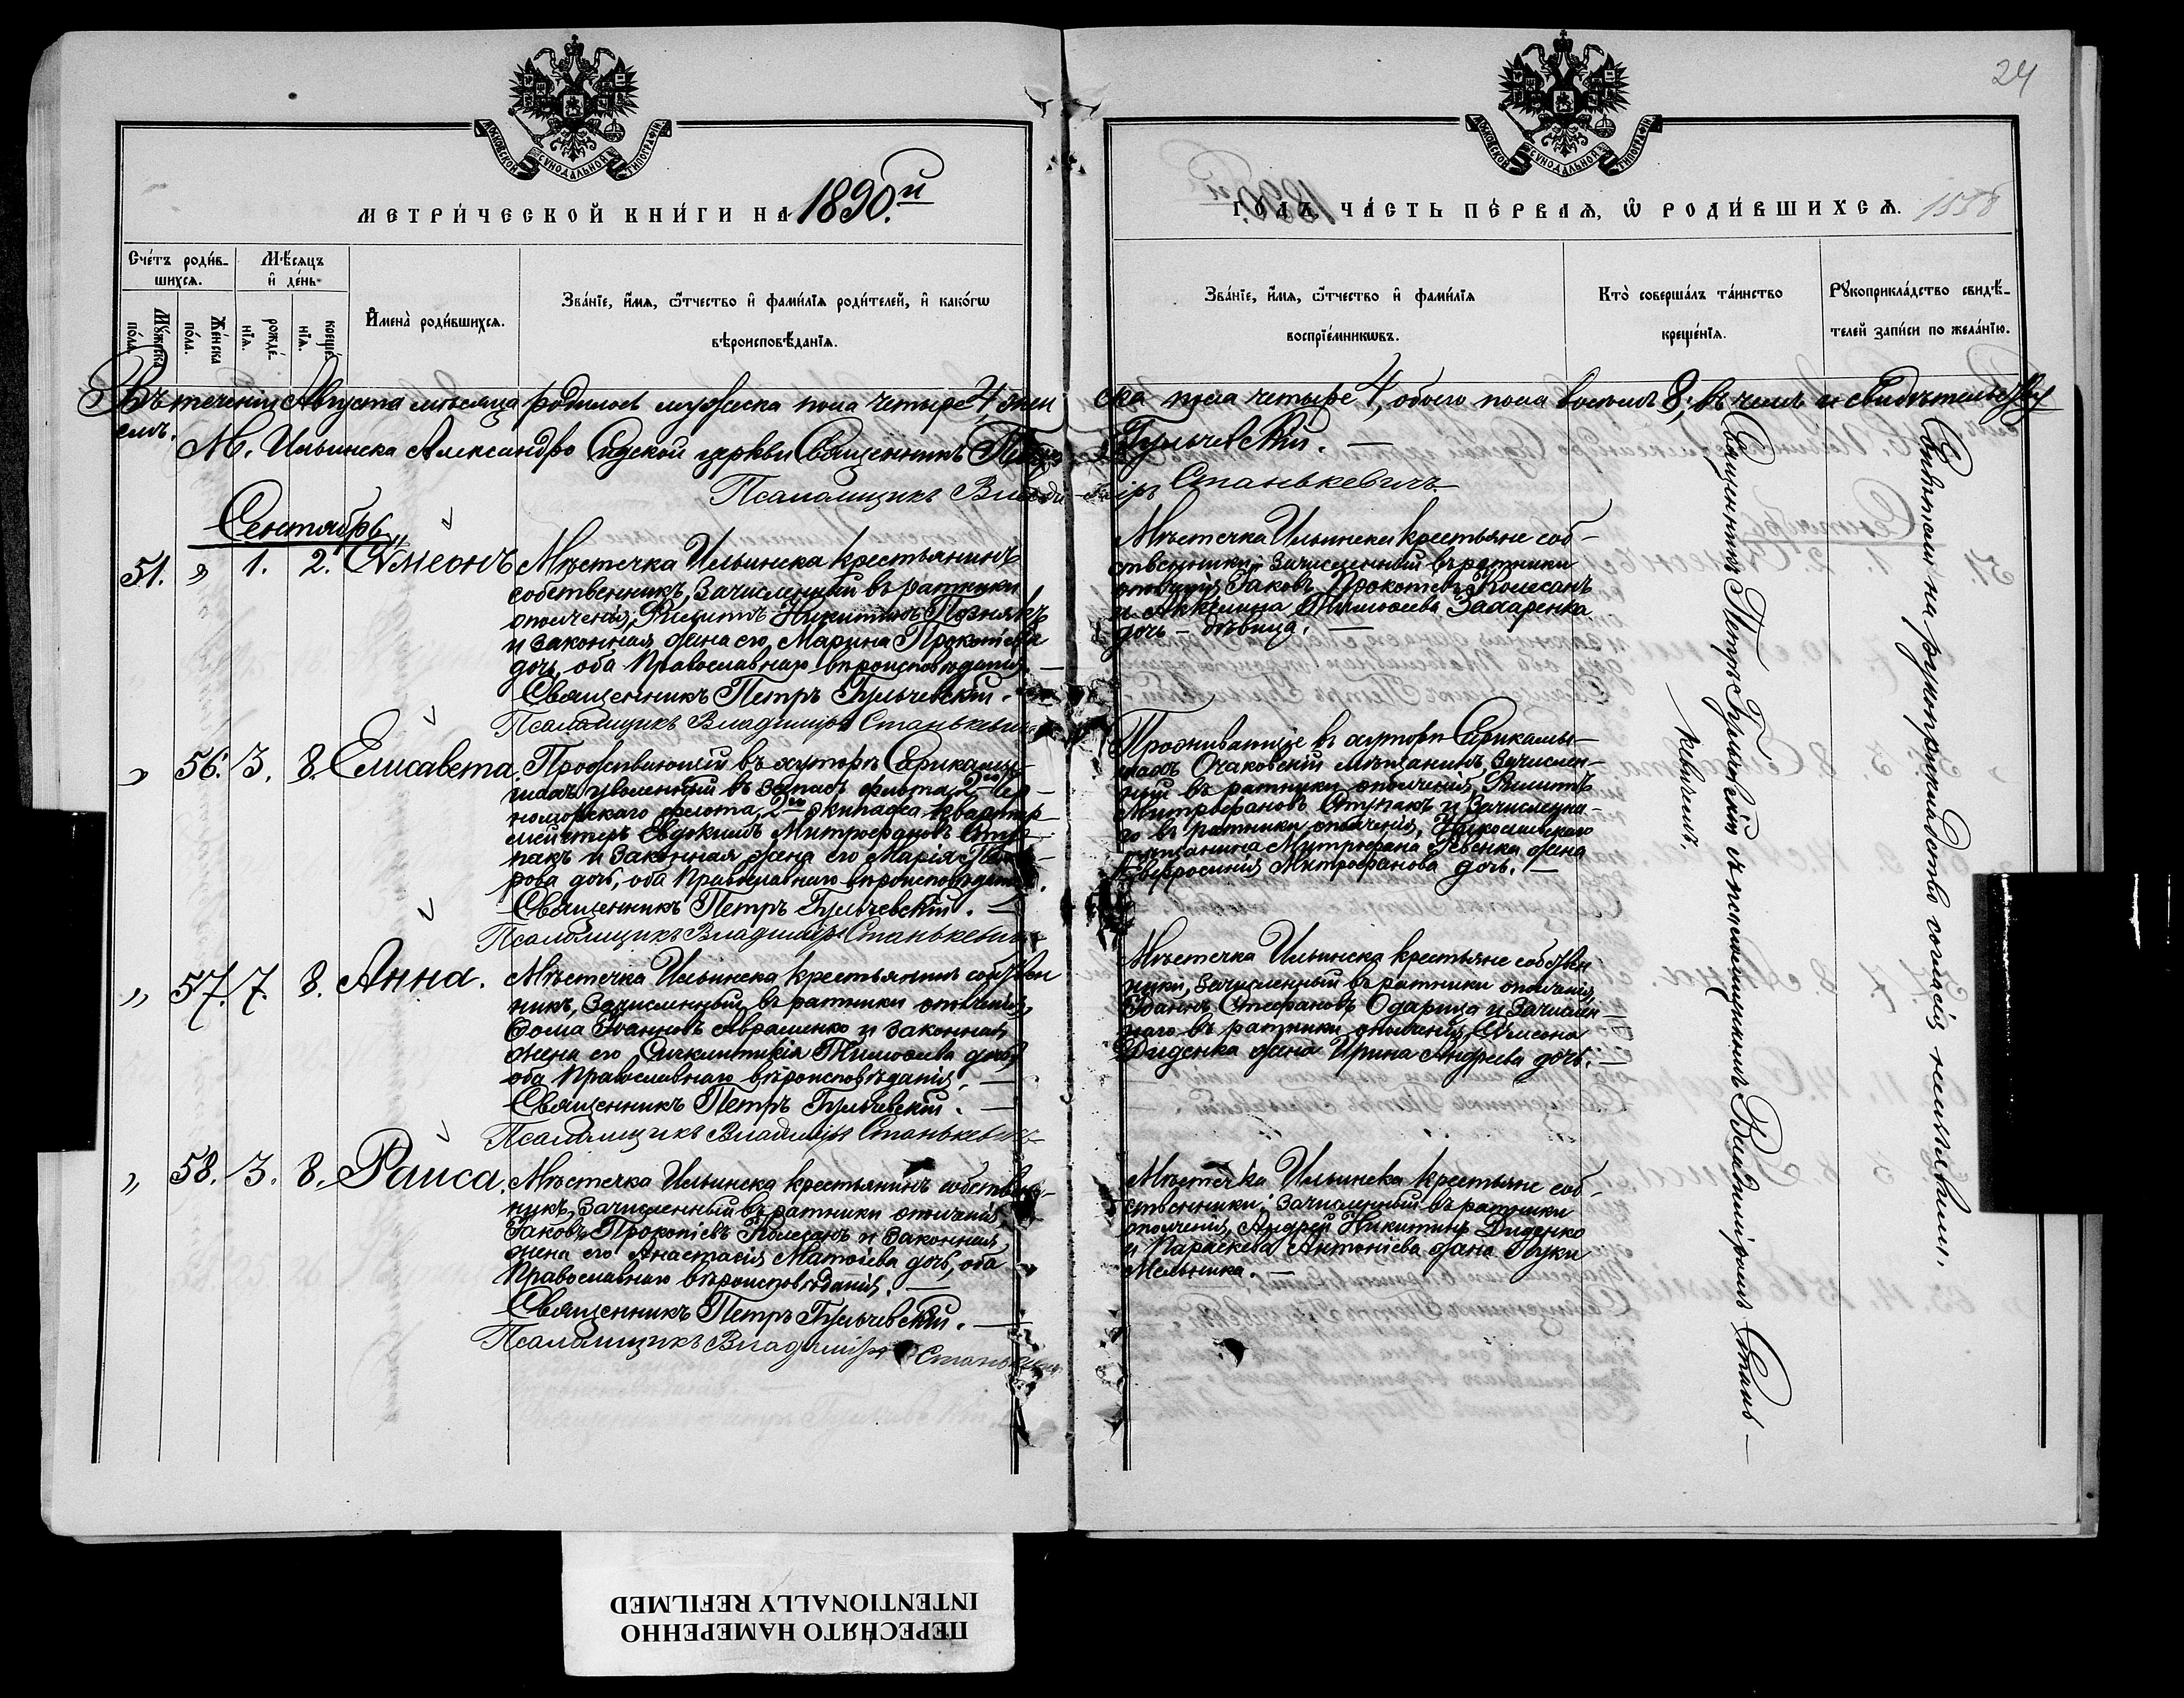 24
МОСКОВСКОЙ СѴНОДАЛЬНОЙ ТИПОГРАФІИ
МОСКОВСКОЙ СѴНОДАЛЬНОЙ ТИПОГРАФІИ
МЕТРИ́ЧЕСКОЙ КНИ́ГИ НА 1890.й
ГО́ДЪ, ЧА́СТЬ ПЕ́РВАѦ, Ѡ РОДИ́ВШИХСѦ. 1558
Сче́тъ роди́в-
шихсѧ.
Мѣ́сѧцъ
и҆ де́нь
Мꙋ́жеска
по́ла.
Же́нска
по́ла.
рожде́-
нїѧ.
креще́-
нїѧ.
И҆мена̀ роди́вшихсѧ.
Зва́нїе, и҆́мѧ, ѻ҆́тчество и҆ фамѝлїѧ роди́телей, и҆ како́гѡ
вѣроисповѣ́данїѧ.
Зва́нїе, и҆́мѧ, ѻ҆́тчество и҆ фамѝлїѧ
воспрїе́мникѡвъ.
Кто̀ соверша́лъ та́инство
креще́нїѧ.
Рꙋкоприкла́дство свидѣ́-
телей за́писи по жела́нїю.
Въ теченіи Августа мѣсяца родилось мужеска пола четыре 4 жен
ска пола четыре 4, обоего пола восемь 8; въ чемъ и свидѣтельству
емъ.
М. Ильинска Александро Сидской церкви Священникъ Петръ
Гульчевскій. —
Псаломщикъ Влади-
міръ Станькевичъ
Сентябрь
51. " 1. 2. Сѵмеонъ
Мѣстечка Ильинска крестьянинъ
собственникъ, зачисленный въ ратники
ополченія, Филиппъ Никитинъ Познякъ
и законная жена его, Марина Прокопіева
дочь, оба Православнаго вѣроисповѣданія. —
Священникъ Петръ Гульчевскій. —
Псаломщикъ Владиміръ Станькевичъ
Мѣстечка Ильинска крестьяне соб-
ственники: зачисленный въ ратники
ополченія, Іаковъ Прокопіевъ Колесанъ
и Акилина Тимоѳеева Захаренка
дочь - дѣвица. —
" 56. 3. 8. Елисавета.
Проживающій въ хуторѣ Сарикамы-
шахъ, уволенный въ запасъ флота, 2го Чер-
номорскаго флота, 2го экипажа квартир-
мейстеръ Евдокимъ Митрофановъ Ступ-
пакъ и законная жена его Марія Пет-
рова дочь, оба Православнаго вѣроисповѣданія.
Священникъ Петръ Гульчевскій. —
Псаломщикъ Владиміръ Станькевичъ
Проживающіе въ хуторѣ Сарикамы-
шахъ Очаковскій мѣщанинъ, зачислен-
ный въ ратники ополченія, Филиппъ
Митрофановъ Ступакъ и зачисленна-
го въ ратники ополченія, Николаевскаго
мѣщанина Митрофана Ревенка жена
Евфросинія Митрофанова дочь. —
" 57. 7. 8. Анна.
Мѣстечка Ильинска крестьянинъ собствен
никъ, зачисленный въ ратники ополченія,
Ѳома Іоанновъ Авраменко и законная
жена его Синклитикія Тимоѳеева дочь,
оба Православнаго вѣроисповѣданія. —
Священникъ Петръ Гульчевскій. —
Псаломщикъ Владиміръ Станькевичъ
Мѣстечка Ильинска крестьяне собствен
ники, зачисленный въ ратники ополченія,
Іоаннъ Стефановъ Одарица и зачислен-
наго въ ратники ополченія, Сѵмеона
Диденка жена Ирина Андреева дочь. —
" 58. 3. 8. Раиса.
Мѣстечка Ильинска крестьянинъ собствен-
никъ, зачисленный въ ратники ополченія,
Іаковъ Прокопіевъ Колесанъ и законная
жена его Анастасія Матѳіева дочь, оба
Православнаго вѣроисповѣданія. —
Священникъ Петръ Гульчевскій. —
Псаломщикъ Владиміръ Станькевичъ
Мѣстечка Ильинска крестьяне соб-
ственники: зачисленный въ ратники
ополченія, Андрей Никитинъ Диденко
и Параскева Антоніева жена Луки
Мельника. —
Священникъ Петръ Гульчевскій съ псаломщикомъ Владиміромъ Стань-
кевичемъ.
Свидѣтели на рукоприкладство согласія не изъявили.
ПЕРЕСНЯТО НАМЕРЕННО
INTENTIONALLY REFILMED